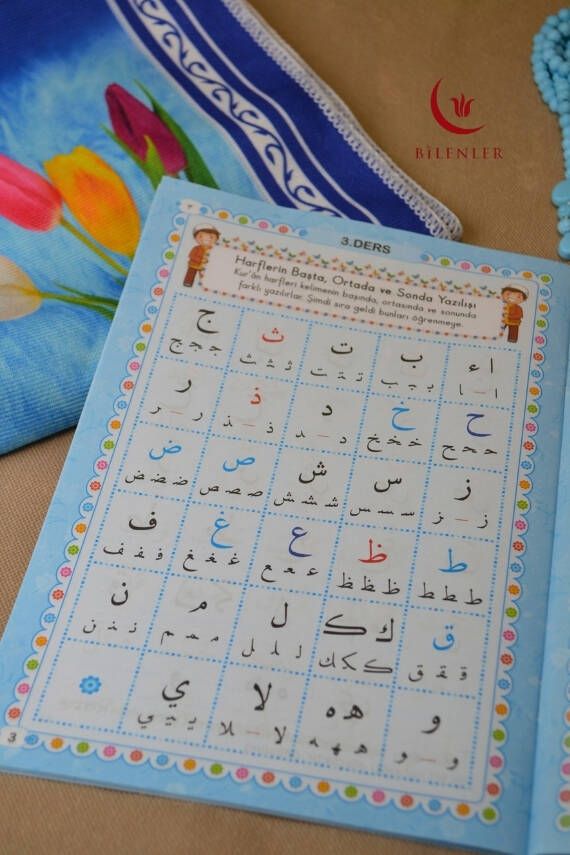 BİLENLER
3.DERS
Harflerin Başta, Ortada ve Sonda Yazılışı
Kur'ân harfleri kelimenin başında, ortasında ve sonunda
farklı yazılırlar. Şimdi sıra geldi bunları öğrenmeye.
ا ء ب ت ث ج
ا ـ ا بـ ـبـ ـب تـ ـتـ ـت ثـ ـثـ ـث جـ ـجـ ـج
ح خ د ذ ر
حـ ـحـ ـح خـ ـخـ ـخ د ـ د ذ ـ ذ ر ـ ر
ز س ش ص ض
ز ـ ز سـ ـسـ ـس شـ ـشـ ـش صـ ـصـ ـص ضـ ـضـ ـض
ط ظ ع غ ف
ط ط ط ظ ظ ظ عـ ـعـ ـع غـ ـغـ ـغ فـ ـفـ ـف
ق ك ک ل م ن
قـ ـقـ ـق کـ ـکـ ـك لـ ـلـ ـل مـ ـمـ ـم نـ ـنـ ـن
و ه ه لا ي
و ـ و هـ ـهـ ـه لا ـ ـلا يـ ـيـ ـي
3